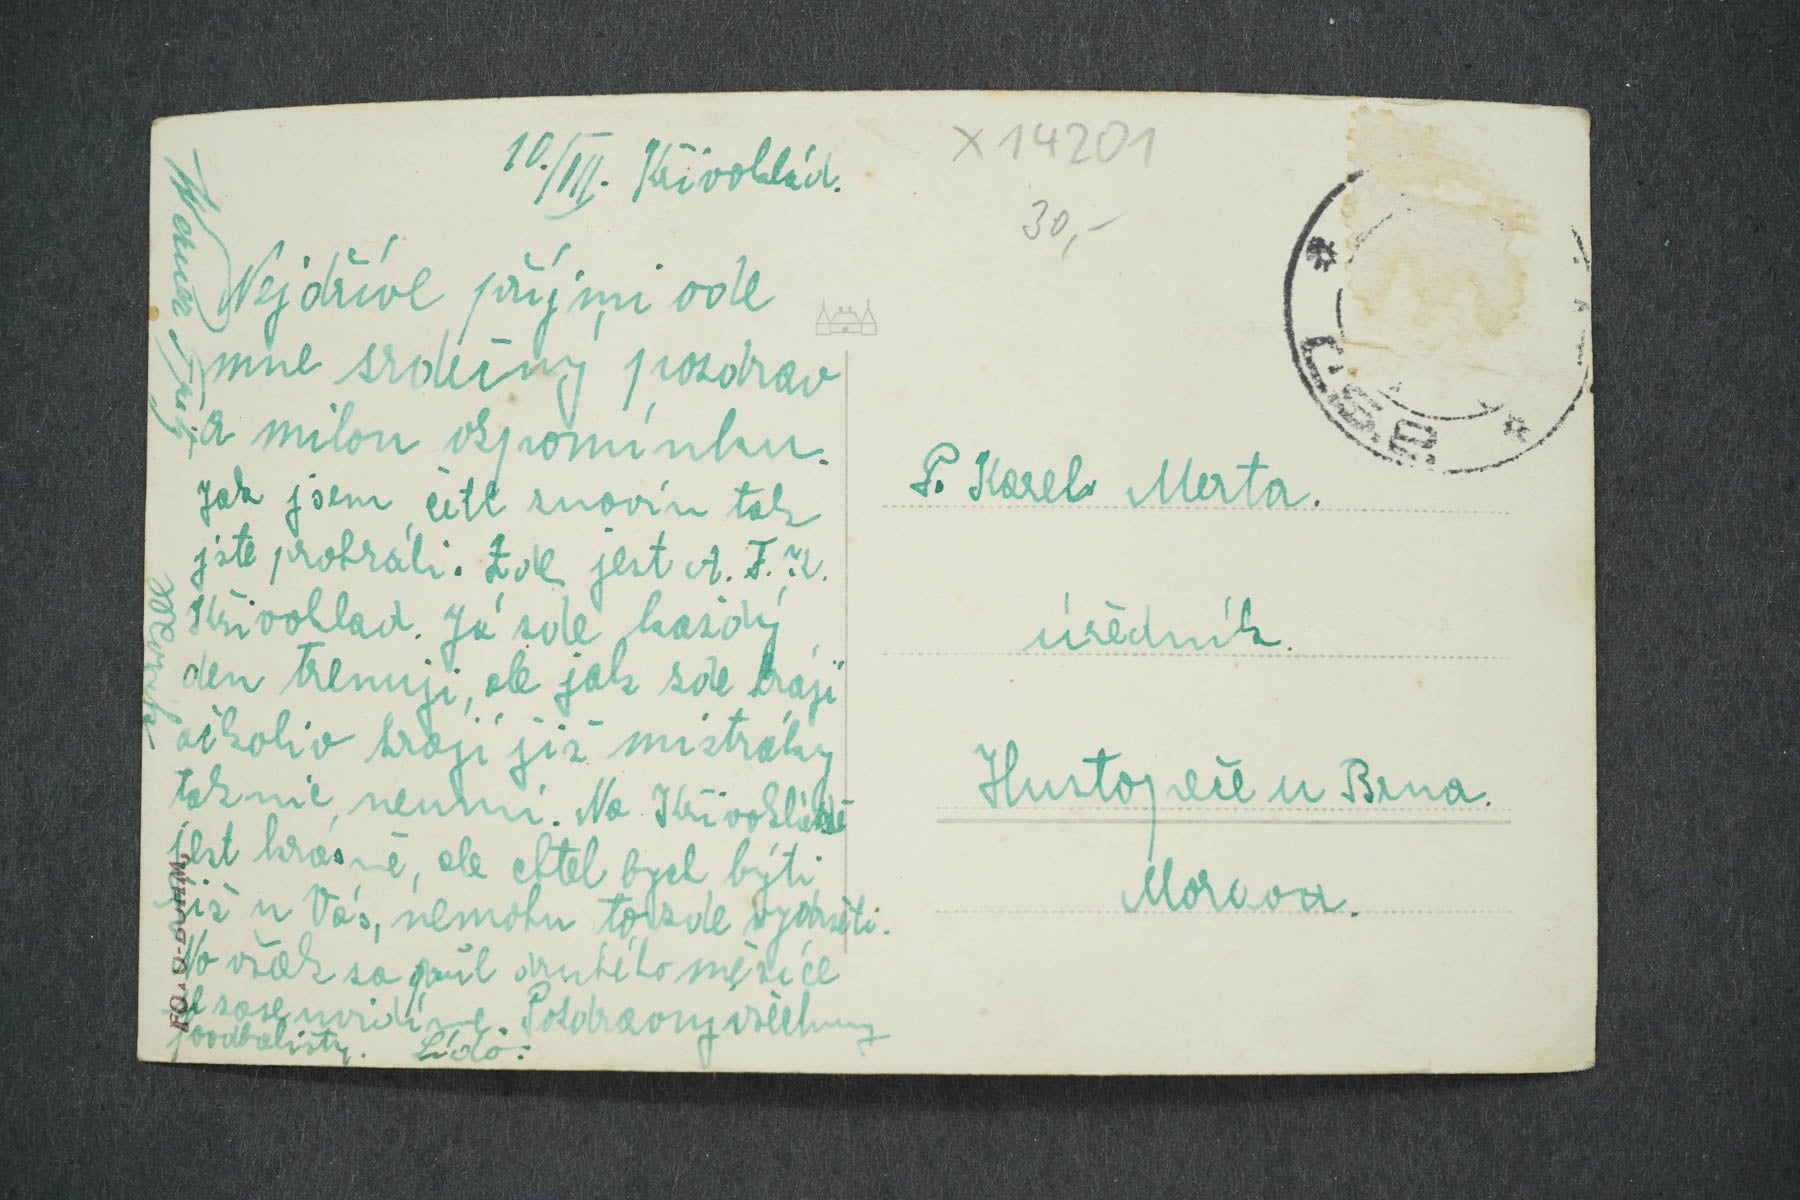 10./III. Křivoklád.
Nejdříve přijmi ode
mne srdečný pozdrav
a milou vzpomínku.
Jak jsem četl z novin tak
jste prohráli. Zde jest A. F. K.
Křivoklad. Já zde každý
den trenuji, ale jak zde hrají
ačkoliv hrají již mistráky
tak nic neumí. Na Křivokládě
jest krásně, ale chtěl bych býti
již u Vás, nemohu to zde vydržeti.
No však za půl druhého měsíce
se zase uvidíme. Pozdravuj všechny
footbalisty. Lído:
FOTO-BÖHM,
X14201
30,-
ČSR
P. Karel Merta.
úředník.
Hustopeče u Brna.
Morava.